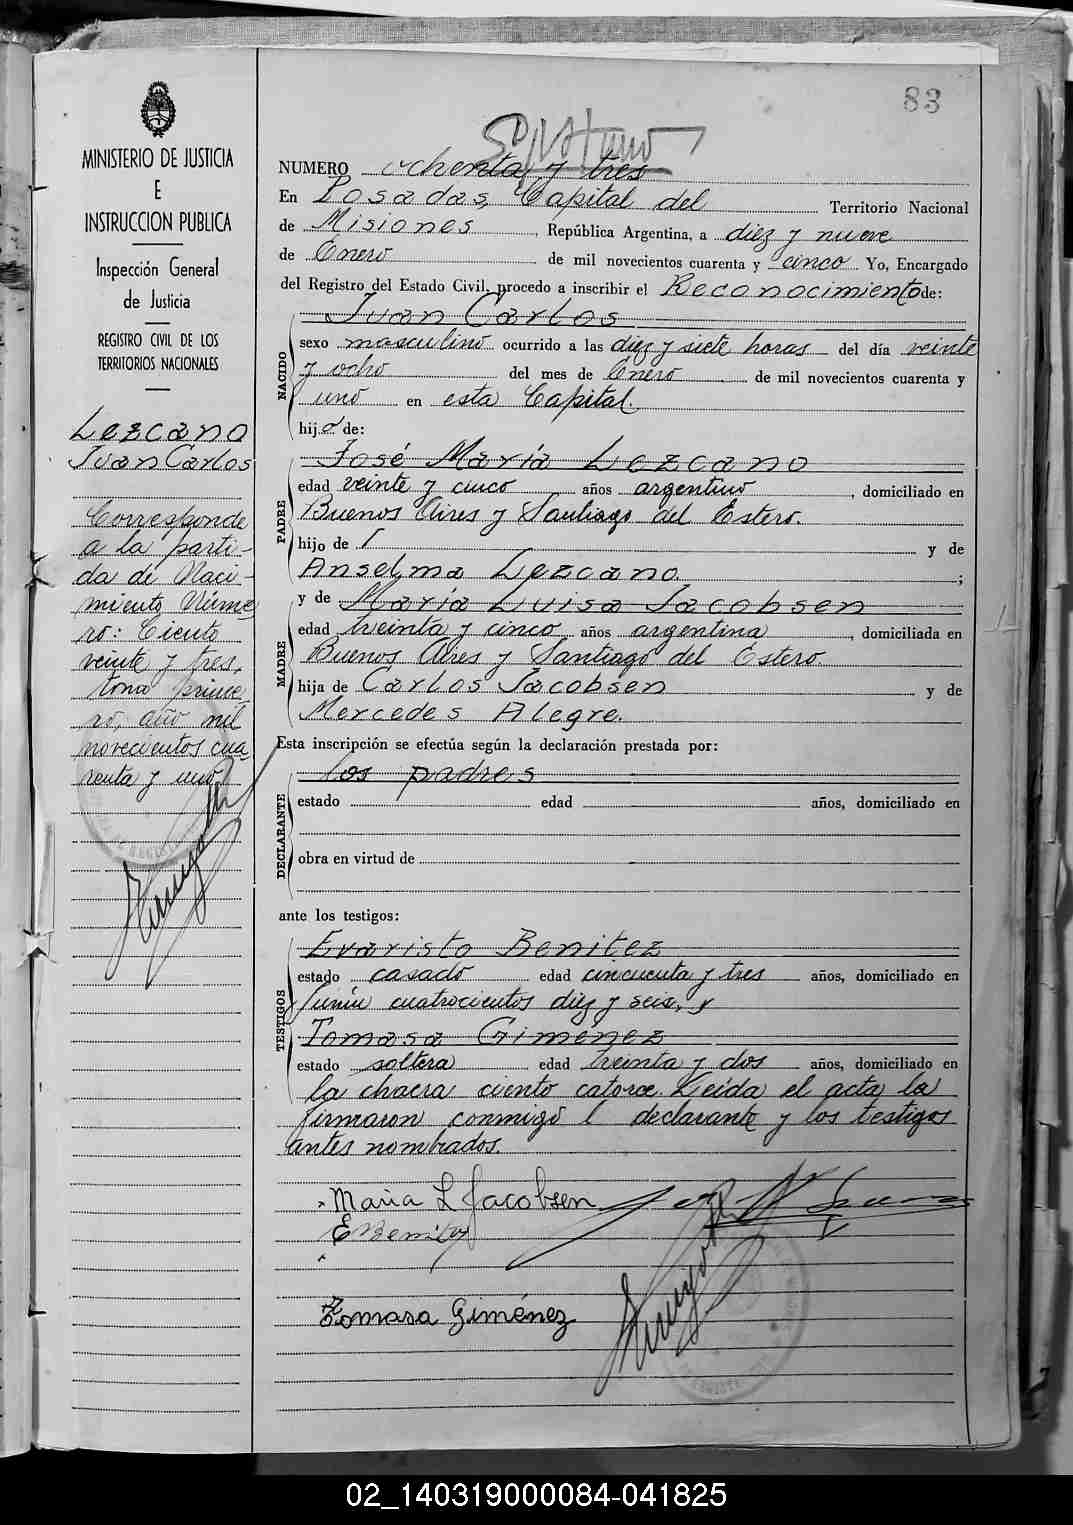 83
MINISTERIO DE JUSTICIA
E
INSTRUCCION PUBLICA
Inspección General
de Justicia
REGISTRO CIVIL DE LOS
TERRITORIOS NACIONALES
Lezcano
Juan Carlos
Corresponde
a la parti-
da de Naci-
miento Núme
ro: Ciento
veinte y tres,
tomo prime
ro, año mil
novecientos cua
renta y uno
NUMERO ochenta y tres
En Posadas, Capital del Territorio Nacional
de Misiones, República Argentina, a diez y nueve
de Enero de mil novecientos cuarenta y cinco Yo, Encargado
del Registro del Estado Civil, procedo a inscribir el Reconocimiento de:
NACIDO
Juan Carlos
sexo masculino ocurrido a las diez y siete horas del día veinte
y ocho del mes de Enero de mil novecientos cuarenta y
uno en esta Capital.
hijo de:
PADRE
José María Lezcano
edad veinte y cinco años argentino, domiciliado en
Buenos Aires y Santiago del Estero.
hijo de y de
Anselma Lezcano. ;
y de María Luisa Jacobsen
MADRE
edad treinta y cinco, años argentina, domiciliada en
Buenos Aires y Santiago del Estero
hija de Carlos Jacobsen y de
Mercedes Alegre.
Esta inscripción se efectúa según la declaración prestada por:
DECLARANTE
los padres
estado edad años, domiciliado en
obra en virtud de
ante los testigos:
TESTIGOS
Evaristo Benitez
estado casado edad cincuenta y tres años, domiciliado en
Junín cuatrocientos diez y seis, y
Tomasa Giménez
estado soltera edad treinta y dos años, domiciliado en
la chacra ciento catorce. Leida el acta la
firmaron conmigo l declarante y los testigos
antes nombrados.
Maria L Jacobsen
E Benitez
Tomasa Giménez
02_140319000084-041825